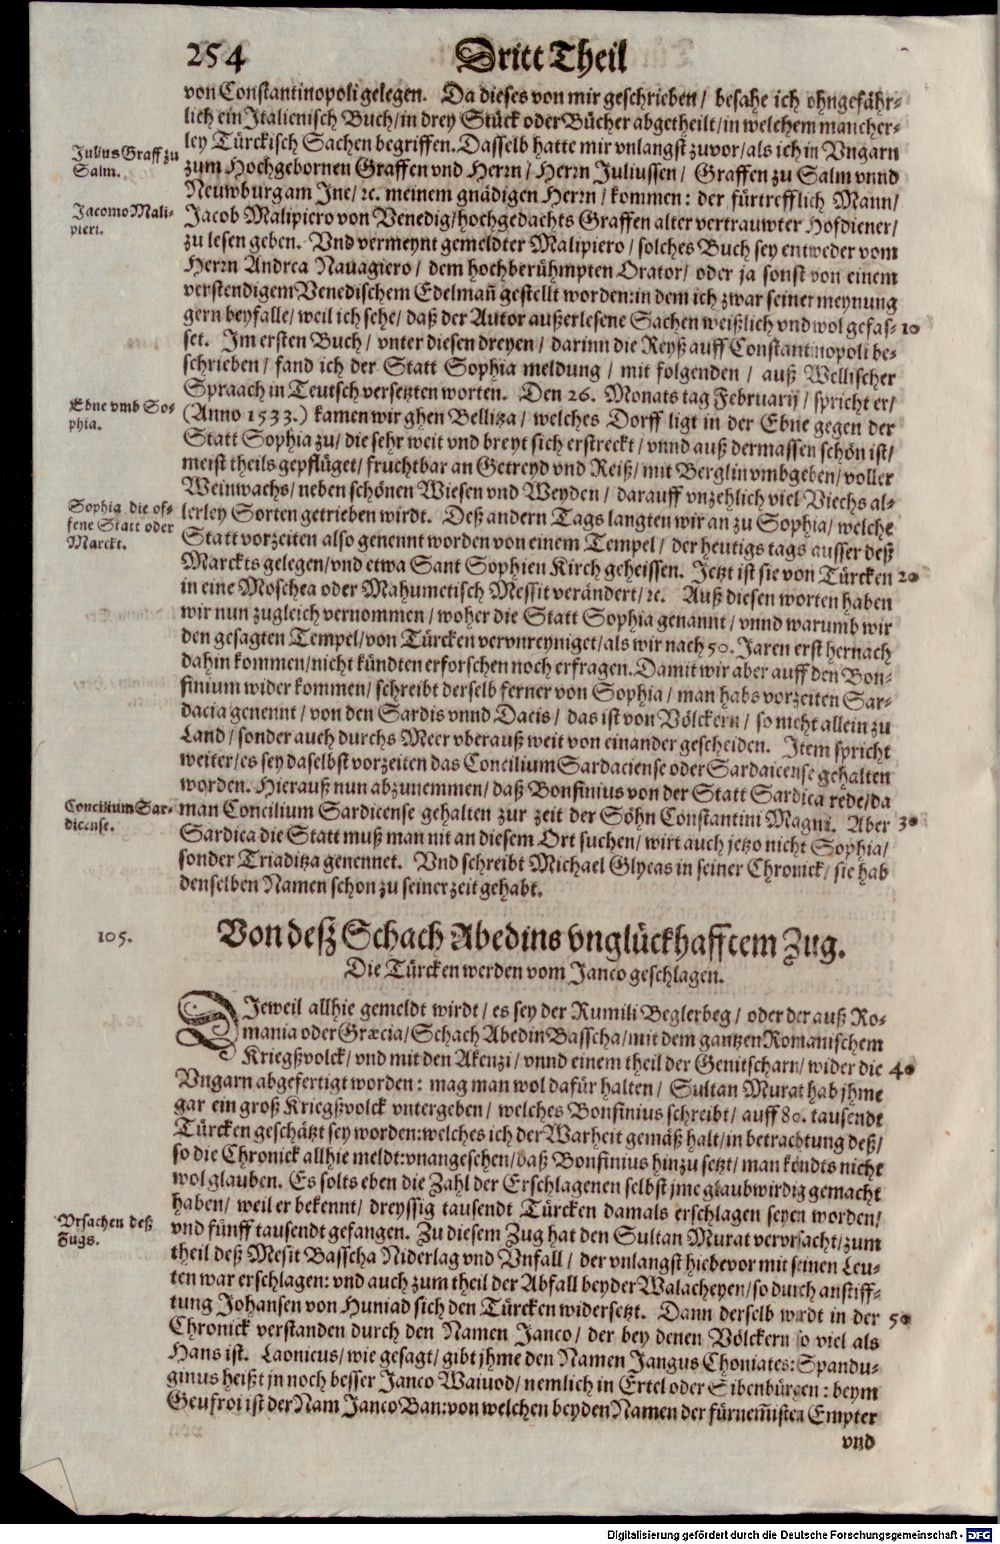 254 Dritt Theil
von Constantinopoli gelegen. Da dieses von mir geschrieben/ besahe ich ohngefähr-
lich ein Italienisch Buch/in drey Stück oder Bücher abgetheilt/in welchem mancher-
ley Türckisch Sachen begriffen. Dasselb hatte mir vnlangst zuvor/als ich in Vngarn
Julius Graff zu
Salm.
zum Hochgebornen Graffen vnd Herrn/ Herrn Juliussen/ Graffen zu Salm vnnd
Neuwburg am Jne/ ꝛc. meinem gnädigen Herrn/ kommen: der fürtrefflich Mann/
Jacomo Mali-
pieri.
Jacob Malipiero von Venedig/hochgedachts Graffen alter vertrauwter Hofdiener/
zu lesen geben. Vnd vermeynt gemeldter Malipiero/ solches Buch sey entweder vom
Herrn Andrea Nauagiero/ dem hochberühmpten Orator/ oder ja sonst von einem
verstendigem Venedischem Edelmañ gestellt worden: in dem ich zwar seiner meynung
gern beyfalle/ weil ich sehe/ daß der Autor außerlesene Sachen weißlich vnd wol gefas- 10
set. Im ersten Buch/ vnter diesen dreyen/ darinn die Reyß auff Constantinopoli be-
schrieben/ fand ich der Statt Sophia meldung/ mit folgenden/ auß Wellischer
Spraach in Teutsch versetzten worten. Den 26. Monats tag Februarij/ spricht er/
Ebne vmb So-
phia.
(Anno 1533.) kamen wir ghen Bellitza/ welches Dorff ligt in der Ebne gegen der
Statt Sophia zu/ die sehr weit vnd breyt sich erstreckt/ vnnd auß dermassen schön ist/
meist theils gepflüget/ fruchtbar an Getreyd vnd Reiß/ mit Berglin vmbgeben/ voller
Weinwachs/ neben schönen Wiesen vnd Weyden/ darauff vnzehlich viel Viechs al-
Sophia die of-
fene Statt oder
Marckt.
lerley Sorten getrieben wirdt. Deß andern Tags langten wir an zu Sophia/ welche
Statt vorzeiten also genennt worden von einem Tempel/ der heutigs tags ausser deß
Marckts gelegen/vnd etwa Sant Sophien Kirch geheissen. Jetzt ist sie von Türcken 20
in eine Moschea oder Mahumetisch Messit verändert/ ꝛc. Auß diesen worten haben
wir nun zugleich vernommen/ woher die Statt Sophia genannt/ vnnd warumb wir
den gesagten Tempel/von Türcken vervnreyniget/als wir nach 50. Jaren erst hernach
dahin kommen/nicht kündten erforschen noch erfragen. Damit wir aber auff den Bon-
finium wider kommen/ schreibt derselb ferner von Sophia/ man habs vorzeiten Sar-
dacia genennt/ von den Sardis vnnd Dacis/ das ist von Völckern/ so nicht allein zu
Land/ sonder auch durchs Meer vberauß weit von einander gescheiden. Item spricht
weiter/es sey daselbst vorzeiten das Concilium Sardaciense oder Sardaicense gehalten
worden. Hierauß nun abzunemmen/ daß Bonfinius von der Statt Sardica rede/da
Concilium Sar-
dicense.
man Concilium Sardicense gehalten zur zeit der Söhn Constantini Magni. Aber 30
Sardica die Statt muß man nit an diesem Ort suchen/ wirt auch jetzo nicht Sophia/
sonder Triaditza genennet. Vnd schreibt Michael Glycas in seiner Chronick/ sie hab
denselben Namen schon zu seiner zeit gehabt.
105. Von deß Schach Abedins vnglückhafftem Zug.
Die Türcken werden vom Janco geschlagen.
DJeweil allhie gemeldt wirdt/ es sey der Rumili Beglerbeg/ oder der auß Ro-
mania oder Græcia/ Schach Abedin Basscha/mit dem gantzen Romanischem
Kriegßvolck/ vnd mit den Akenzi/ vnnd einem theil der Genitscharn/ wider die 40
Vngarn abgefertigt worden: mag man wol dafür halten/ Sultan Murat hab jhme
gar ein groß Kriegßvolck vntergeben/ welches Bonfinius schreibt/ auff 80. tausendt
Türcken geschätzt sey worden: welches ich der Warheit gemäß halt/in betrachtung deß/
so die Chronick allhie meldt: vnangesehen/daß Bonfinius hinzu setzt/ man köndts nicht
wol glauben. Es solts eben die Zahl der Erschlagenen selbst jme glaubwirdig gemacht
haben/ weil er bekennt/ dreyssig tausendt Türcken damals erschlagen seyen worden/
Vrsachen deß
Zugs.
vnd fünff tausendt gefangen. Zu diesem Zug hat den Sultan Murat vervrsacht/zum
theil deß Mesit Basscha Niderlag vnd Vnfall/ der vnlangst hiebevor mit seinen Leu-
ten war erschlagen: vnd auch zum theil der Abfall beyder Walacheyen/so durch anstiff-
tung Johansen von Huniad sich den Türcken widersetzt. Dann derselb wirdt in der 50
Chronick verstanden durch den Namen Janco/ der bey denen Völckern so viel als
Hans ist. Laonicus/ wie gesagt/ gibt jhme den Namen Jangus Choniates: Spandu-
ginus heißt jn noch besser Janco Waiuod/ nemlich in Ertel oder Sibenbürgen: beym
Geufroi ist der Nam Janco Ban: von welchen beyden Namen der fürnem̃isten Empter
vnd
Digitalisierung gefördert durch die Deutsche Forschungsgemeinschaft - DFG